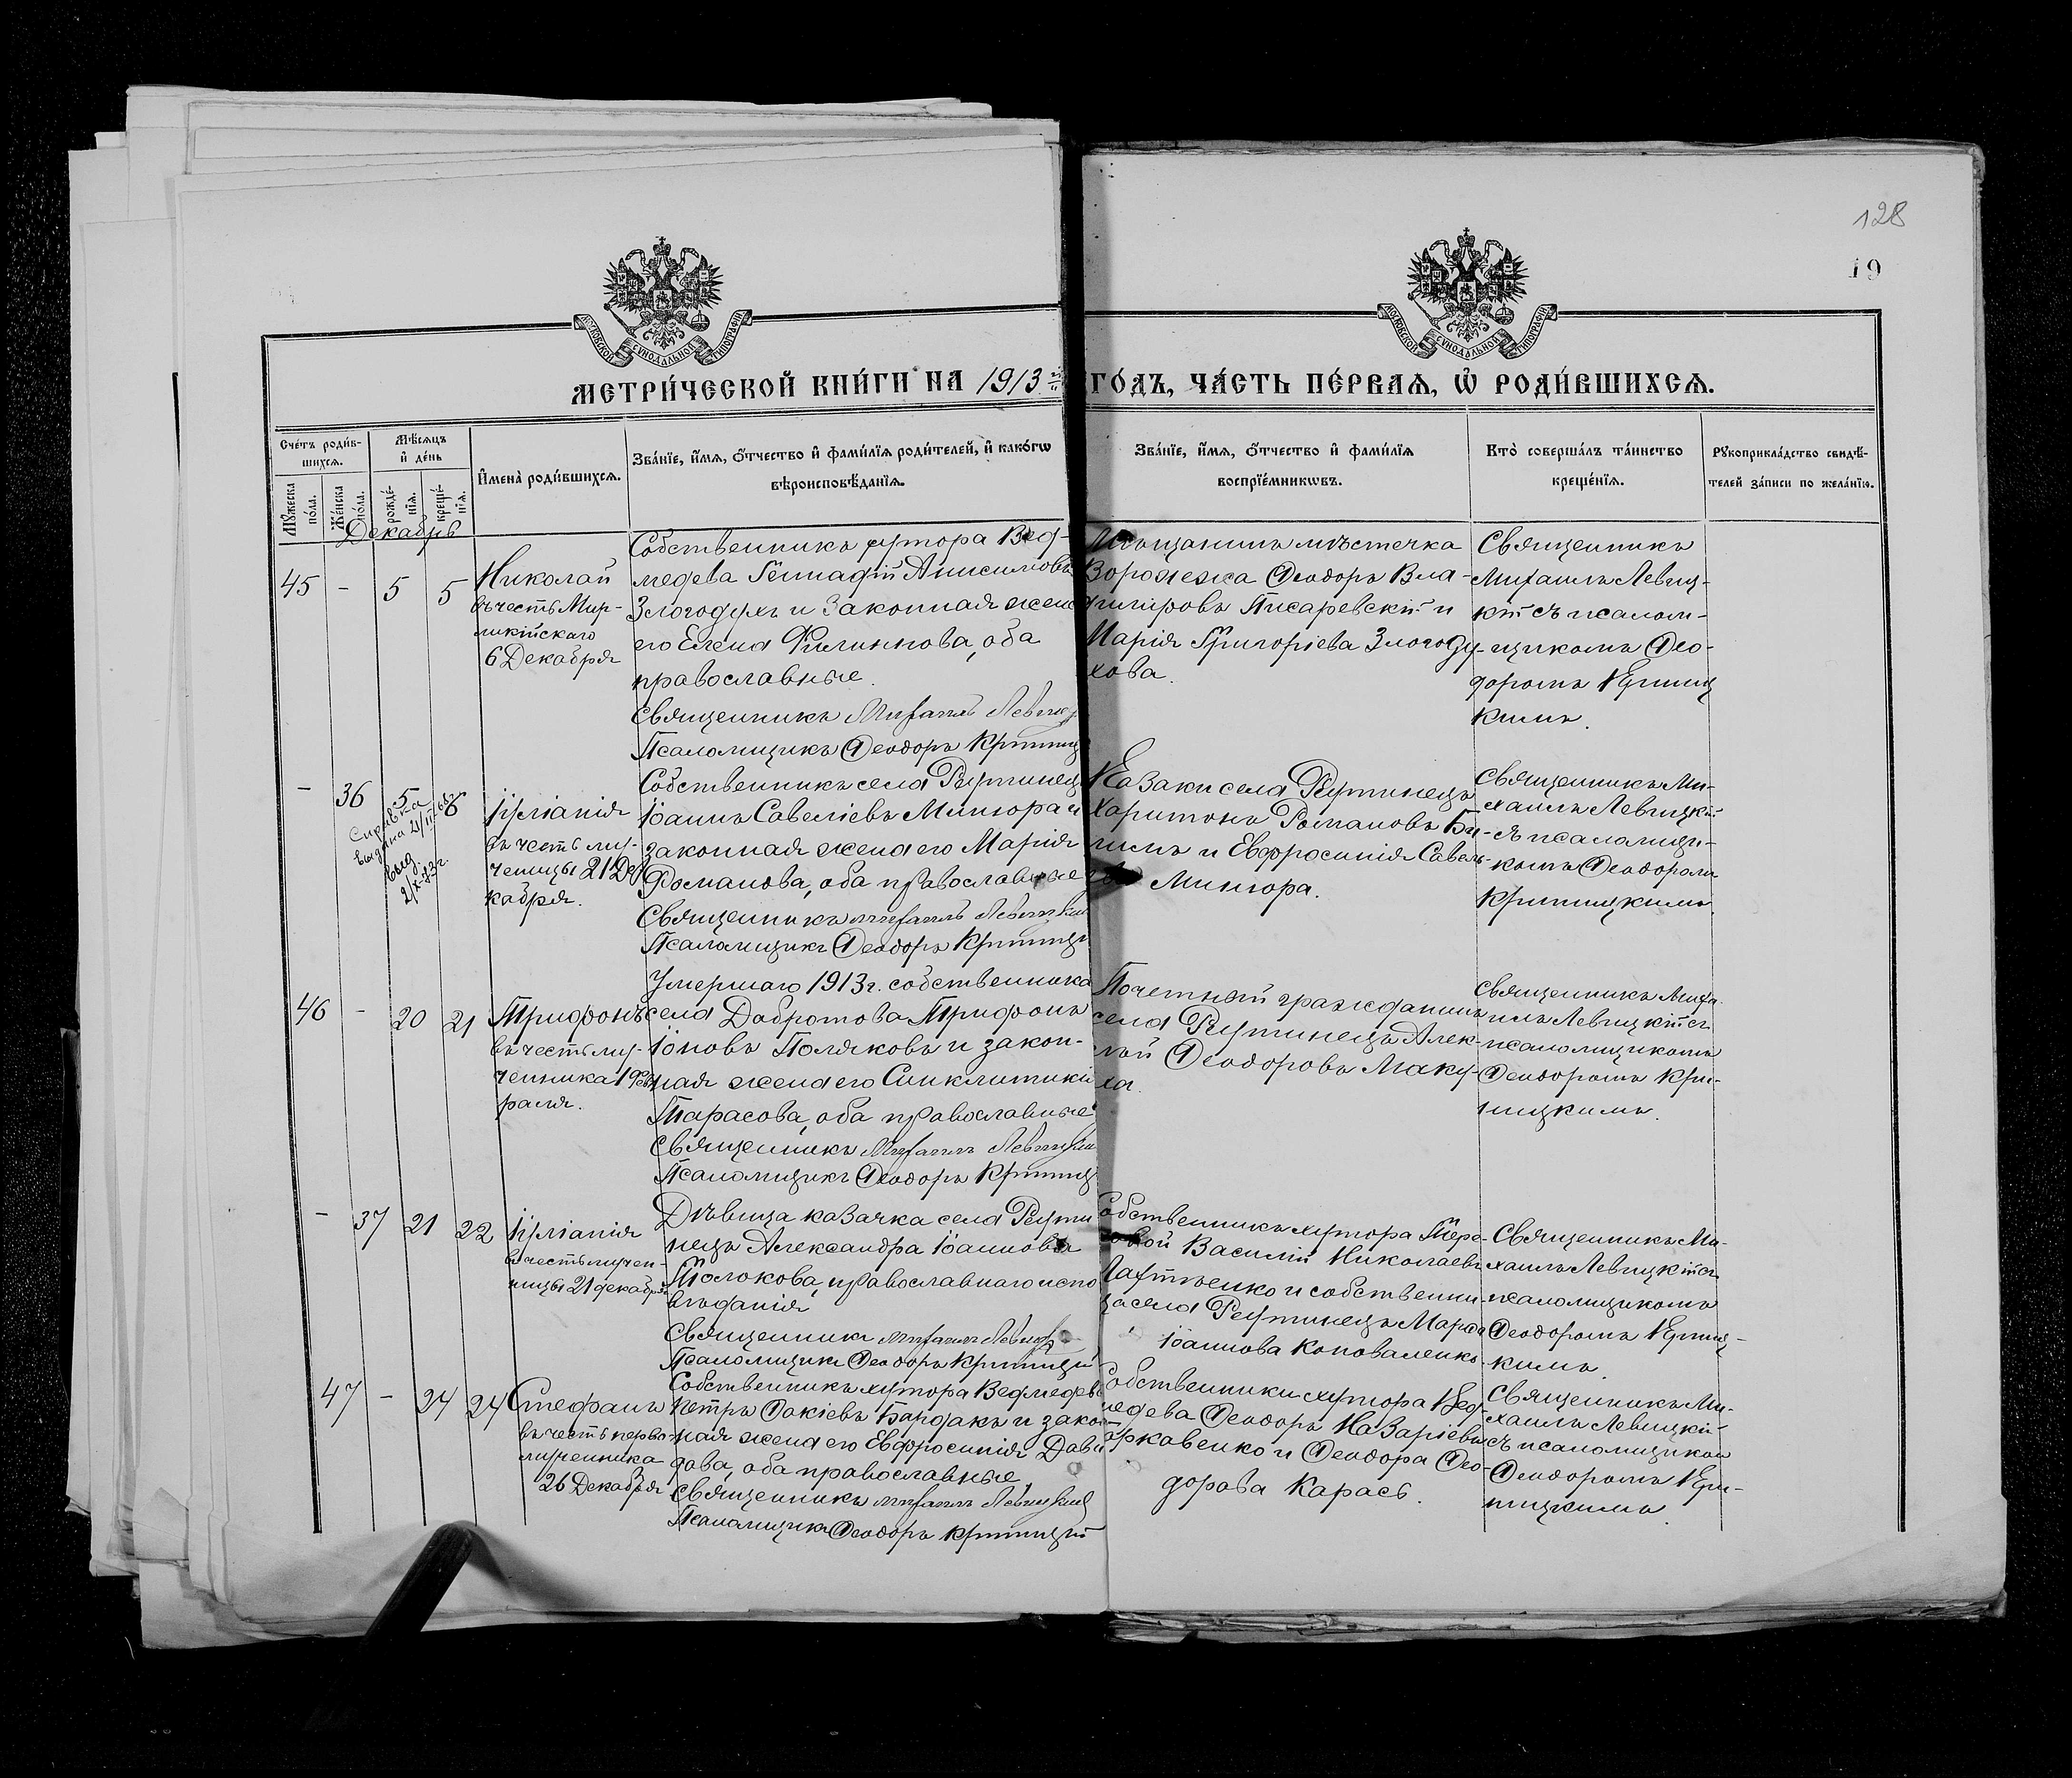 128
19
МОСКОВСКОЙ СѴНОДАЛЬНОЙ ТИПОГРАФІИ
МОСКОВСКОЙ СѴНОДАЛЬНОЙ ТИПОГРАФІИ
МЕТРИ́ЧЕСКОЙ КНИ́ГИ НА 1913 ГО́ДЪ, ЧА́СТЬ ПЕ́РВАѦ, Ѡ҆ РОДИ́ВШИХСѦ.
Сче́тъ роди́в-
шихсѧ.
Мѣ́сѧцъ
и҆ де́нь
Мꙋ́жеска
по́ла.
Же́нска
по́ла.
рожде́-
нїѧ.
креще́-
нїѧ.
И҆мена̀ роди́вшихсѧ.
Зва́нїе, и҆́мѧ, ѻ҆́тчество и҆ фами́лїѧ роди́телей, и҆ како́гѡ
вѣроисповѣ́данїѧ.
Зва́нїе, и҆́мѧ, ѻ҆́тчество и҆ фами́лїѧ
воспрїе́мникѡвъ.
Кто̀ соверша́лъ та́инство
креще́нїѧ.
Рꙋкоприкла́дство свидѣ́-
телей за́писи по жела́нїю.
Декабрь
45 - 5 5
Николай
въ честь Мир-
ликійскаго
6 Декабря
Собственникъ хутора Вед-
медева Геннадій Анисимовъ
Злогодухъ и законная жена
его Елена Филиппова, оба
православные.
Священникъ Михаилъ Левицк
Псаломщикъ Ѳеодоръ Криниц
Мѣщанинъ мѣстечка
Воронежа Ѳеодоръ Вла-
диміровъ Писаревскій и
Марія Григоріева Злогоду-
хова.
Священникъ
Михаилъ Левиц-
кій съ псалом-
щикомъ Ѳео-
доромъ Криниц
кимъ.
- 36 5 8
Справка
выдана 21/
выд.
2/X-73г.
Іуліанія
въ честь му-
ченицы 21 Де
кабря.
Собственникъ села Рутинецъ
Іоаннъ Савеліевъ Минюра и
законная жена его Марія
Романова, оба православные
Священникъ Михаилъ Левицкій
Псаломщикъ Ѳеодоръ Криницк
Казаки села Рутинецъ
Харитонъ Романовъ Би-
и Евфросинія Савель-
Минюра.
Священникъ Ми-
хаилъ Левицкій
съ псаломщи-
комъ Ѳеодоромъ
Криницкимъ.
46 - 20 21
Трифонъ
въ честь му-
ченика 1 Фев
раля.
Умершаго 1913 г. собственника
села Добротова Трифонъ
Іоновъ Поляковъ и закон-
ная жена его Синклитикі
Тарасова, оба православные
Священникъ Михаилъ Левицкій
Псаломщикъ Ѳеодоръ Криниц
Почетный гражданинъ
села Рутинецъ Алек-
сѣй Ѳеодоровъ Маку-
ха.
Священникъ Миха
илъ Левицкій съ
псаломщикомъ
Ѳеодоромъ Кри-
ницкимъ.
- 37 21 22
Іуліанія
въ честь мучен-
ницы 21 декабря
Дѣвица казачка села Рути
нецъ Александра Іоаннова
Толокова, православнаго испо
вѣданія
Священникъ Михаилъ Левицк
Псаломщикъ Ѳеодоръ Криницкій
Собственникъ хутора Тере-
Василій Николаевъ
Лахтіенко и собственни-
ца села Рутинецъ Марѳа
Іоаннова Коноваленко.
Священникъ Ми-
хаилъ Левицкій съ
псаломщикомъ
Ѳеодоромъ Криниц-
кимъ.
47 - 24 24
Стефанъ
въ честь перво-
мученика
26 Декабря
Собственникъ хутора Ведмедев
Петръ Фокіевъ Бардакъ и закон
ная жена его Евфросинія Дави
дова, оба православные
Священникъ Михаилъ Левицкій
Псаломщикъ Ѳеодоръ Криницкій
Собственники хутора Вед-
медева Ѳеодоръ Назаріевъ
и Ѳеодора Ѳео-
дорова Карась.
Священникъ Ми-
хаилъ Левицкій
съ псаломщикомъ
Ѳеодоромъ Кри-
ницкимъ.